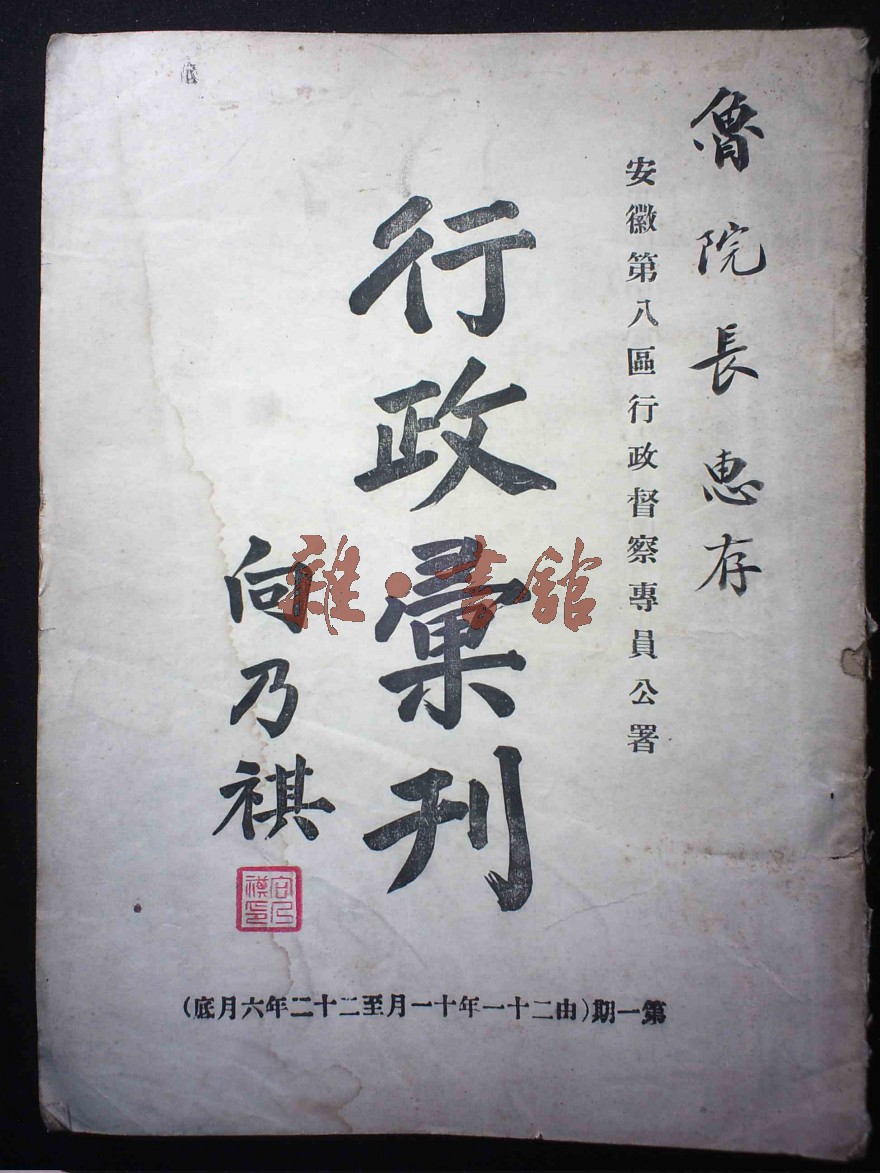 魯院長惠存
安徽第八區行政督察專員公署
行政彙刊
向乃祺
向乃祺印
雜·書館
第一期(由二十一年十一月至二十二年六月底)